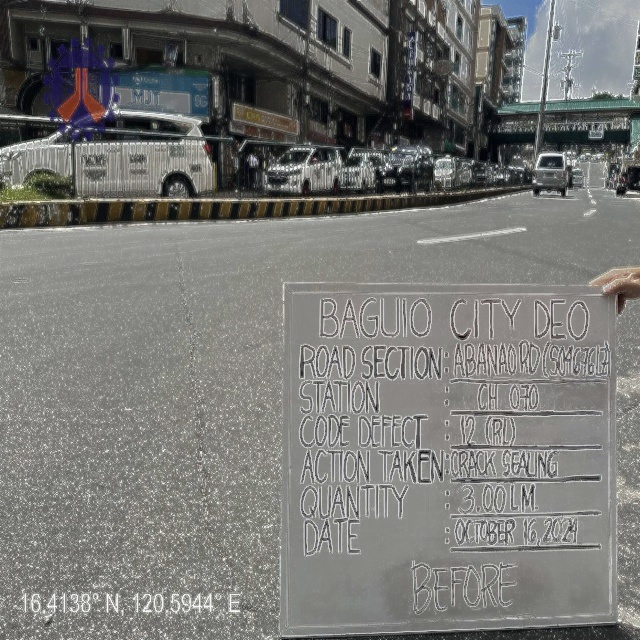 BAGUIO CITY DEO
ROAD SECTION : ABANAO RD (S04676LZ)
STATION : CH 070
CODE DEFECT : 12 (RL)
ACTION TAKEN : CRACK SEALING
QUANTITY : 3.00 LM.
DATE : OCTOBER 16, 2024
BEFORE
16.4138° N, 120.5944° E